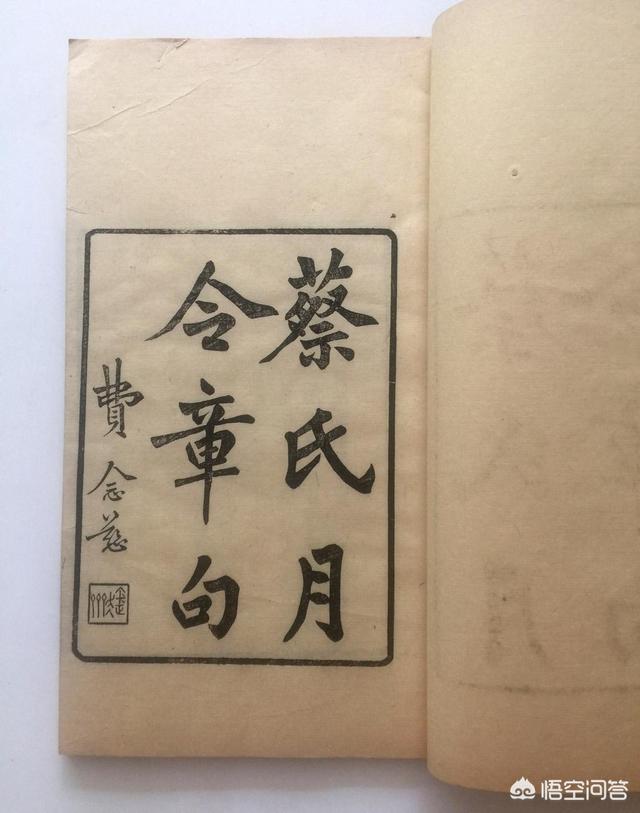 蔡氏月
令章句
費念慈
悟空问答